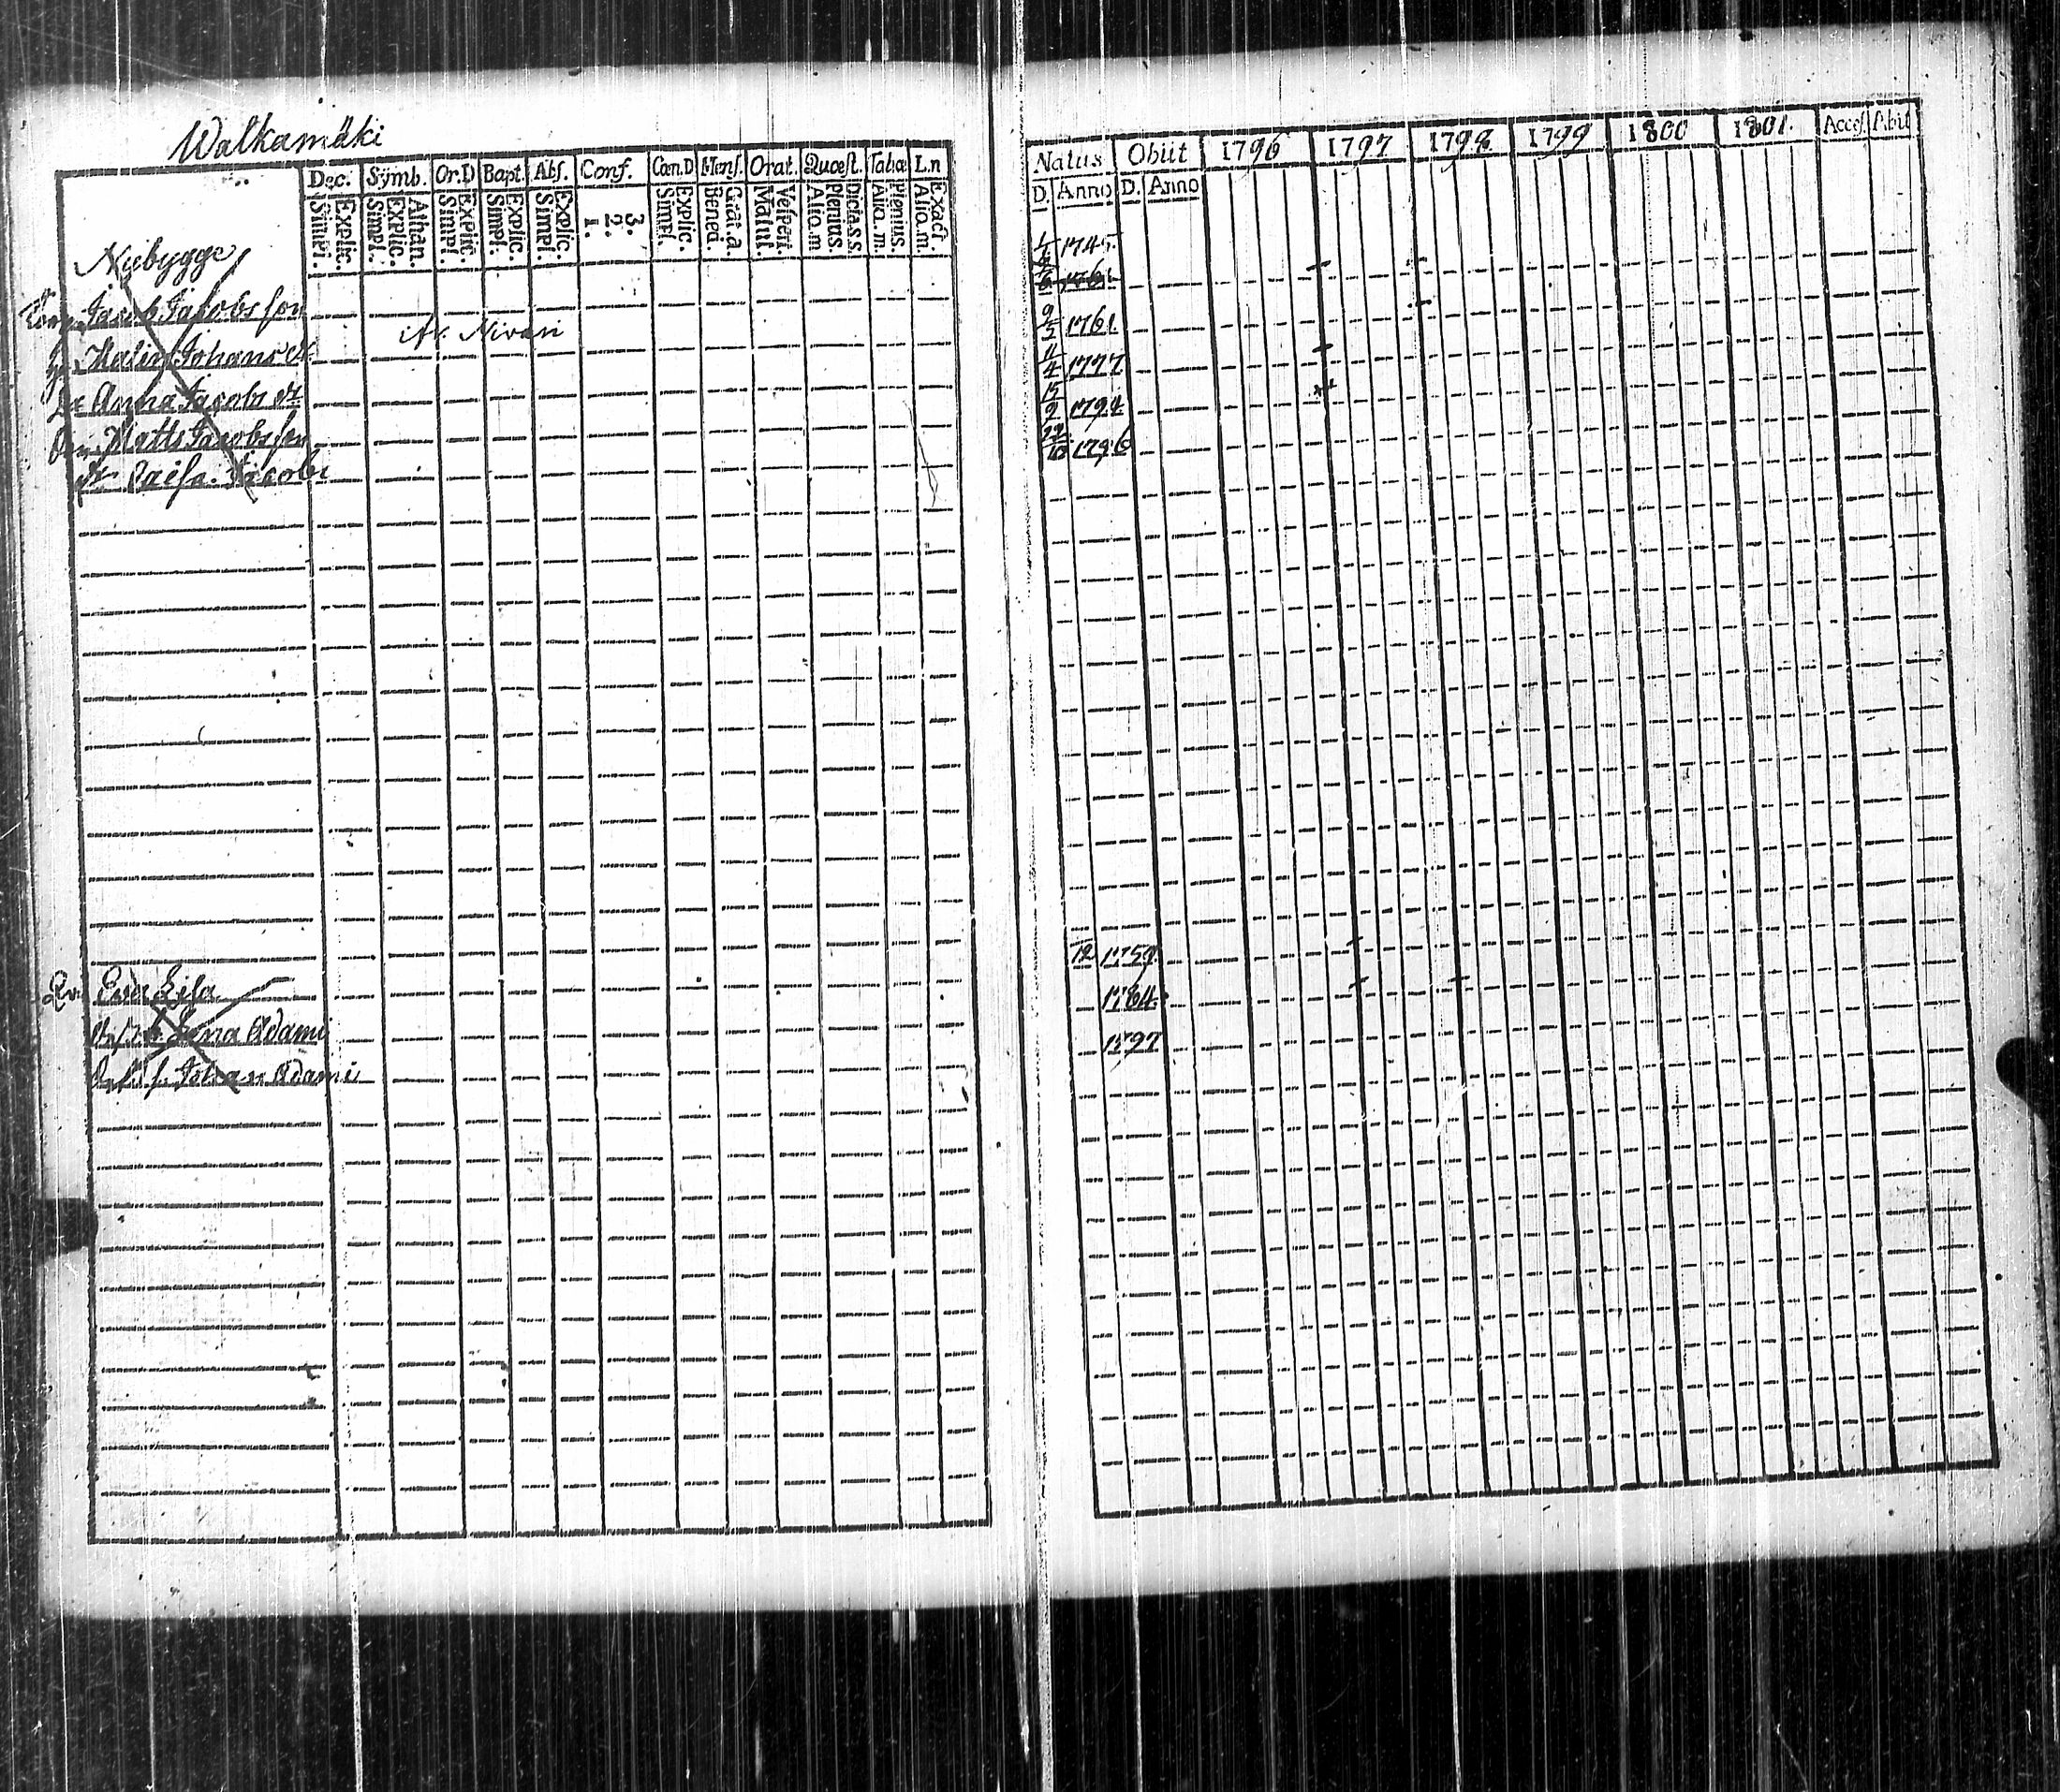 Walkamäki
Dec. Symb. Or.D Bapt. Abs. Conf. Cœn.D Mens. Orat. Quæst. Tabæ L.n
Simpl. Explic. Simpl. Explic. Athan. Simpl. Explic. Simpl. Explic. Simpl. Explic. 1. 2. 3. Simpl. Explic. Bened. Grat.a. Matut. Vespert. Aliq.m Plenius. Dicta.s.s. Aliq.m. Plenius. Aliq.m. Exact.
Nÿebygge
Jacob Jacobsson
Malin Johans dr
Anna Jacobs dr
Matts Jacobsson
Caisa Jacobi
Nivari
Ewa Lisa
Lena Adami
Johan Adami
Natus Obiit 1796 1797 1798 1799 1800 1801. Acces. Abit
D. Anno D. Anno
1745.
1761.
9/5 1761.
11/4 1777
15/9 1794
22/10 1796
12 1759
1764
1797